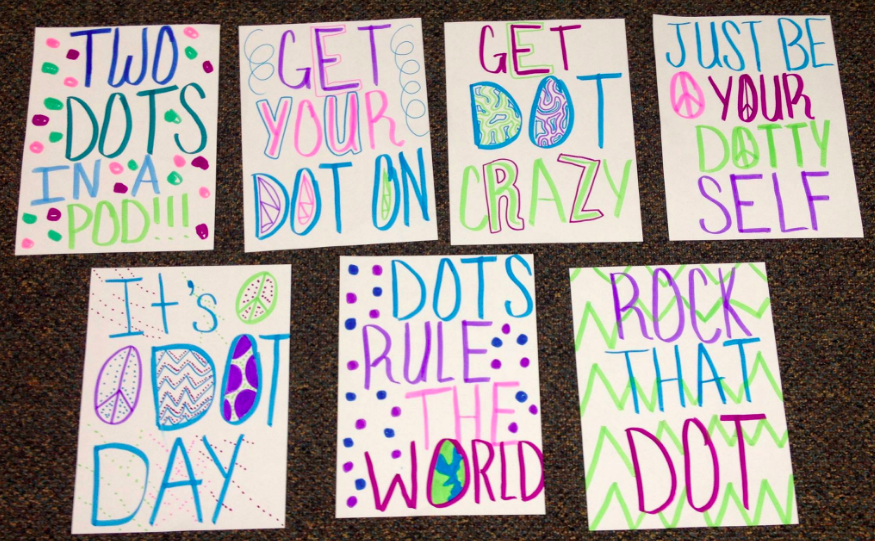 TWO
DOTS
IN A
POD!!!
GET
YOUR
DOT ON
GET
DOT
CRAZY
JUST BE
YOUR
DOTTY
SELF
It's
DOT
DAY
DOTS
RULE
THE
WORLD
ROCK
THAT
DOT